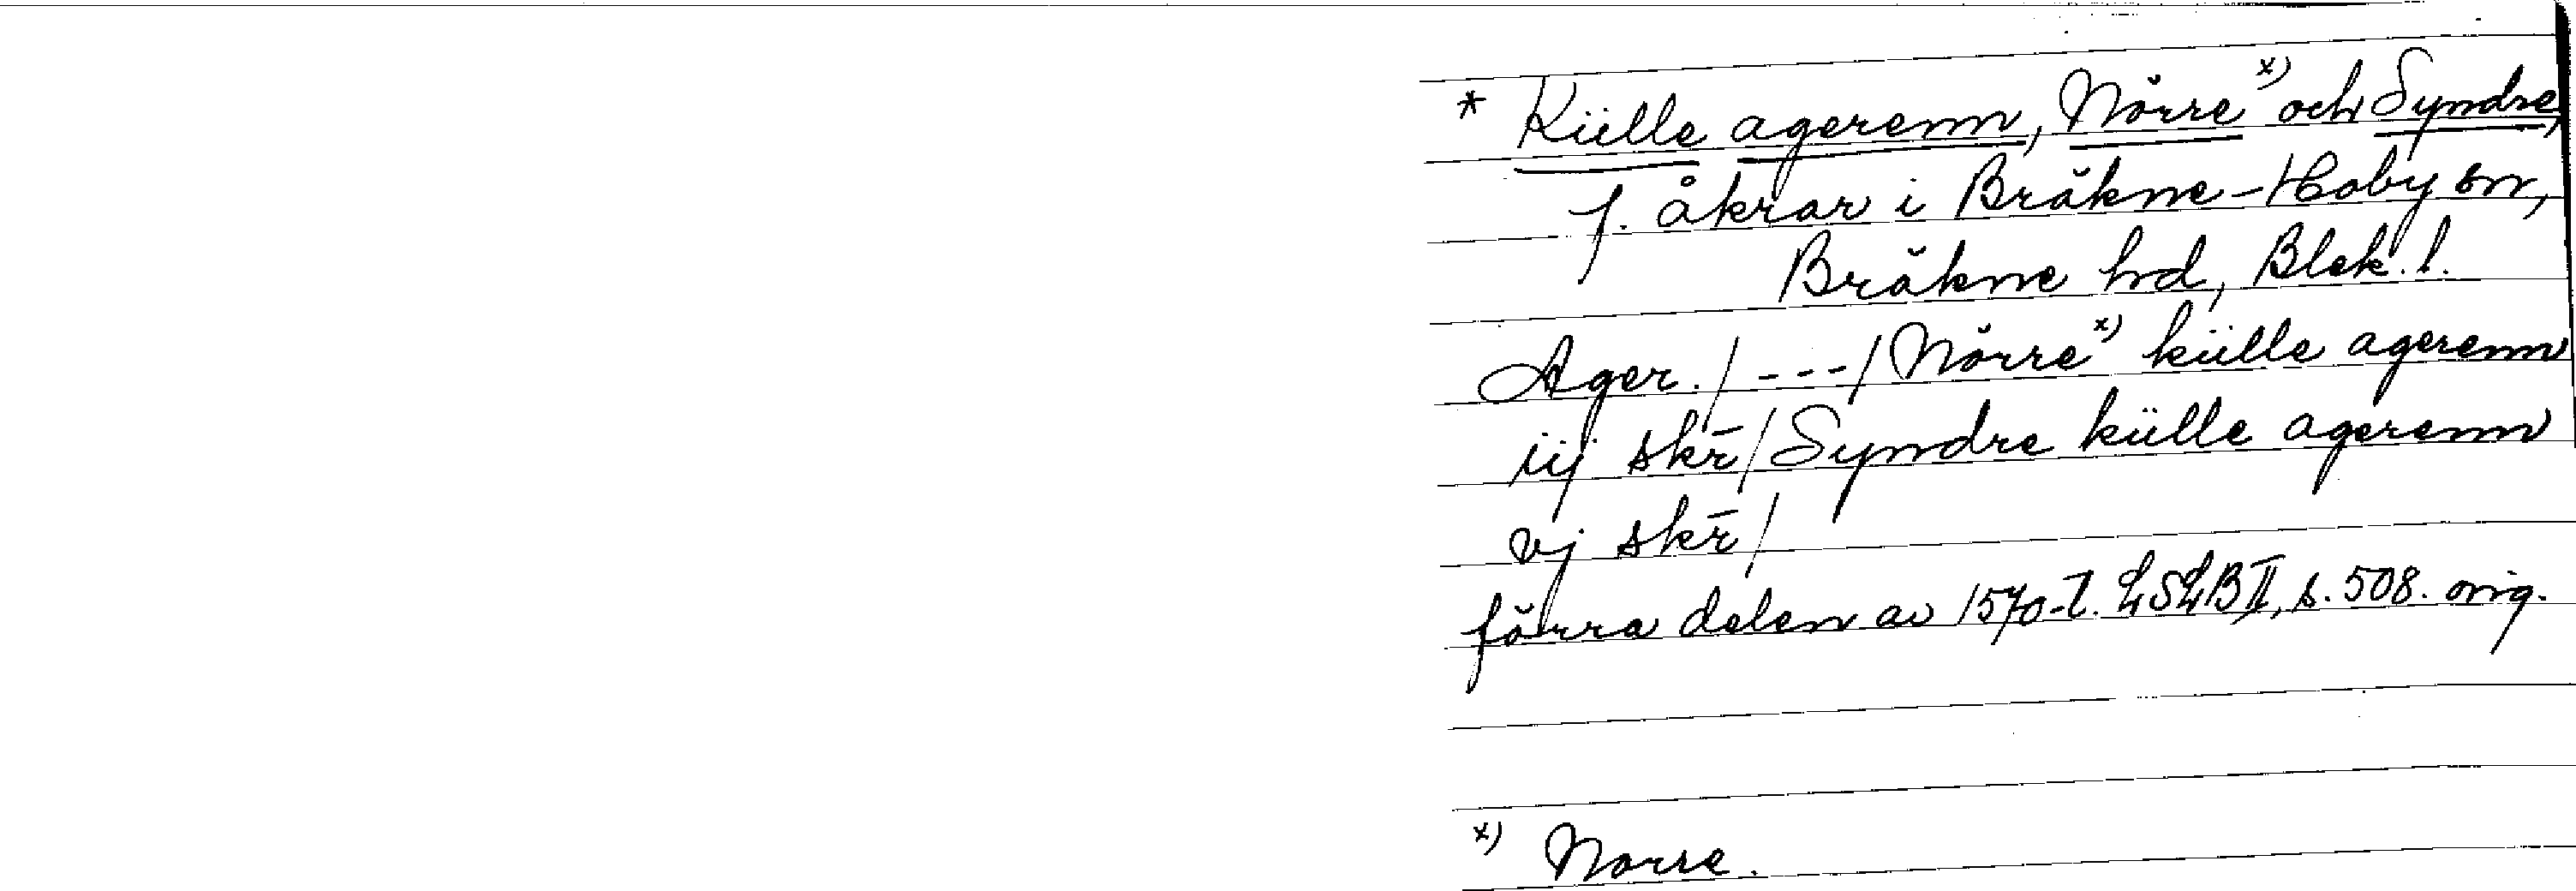 * Külle agerenn, Nörre x) och Syndre,
f. åkrar i Bräkne-Hoby sn,
Bräkne hd, Blek. l.
Ager. / --- / Nörre x) külle agerenn
iij skr̄ / Syndre külle agerenn
vj skr̄ /
förra delen av 1570-t. LSLB II, s. 508. orig.
x) Norre.